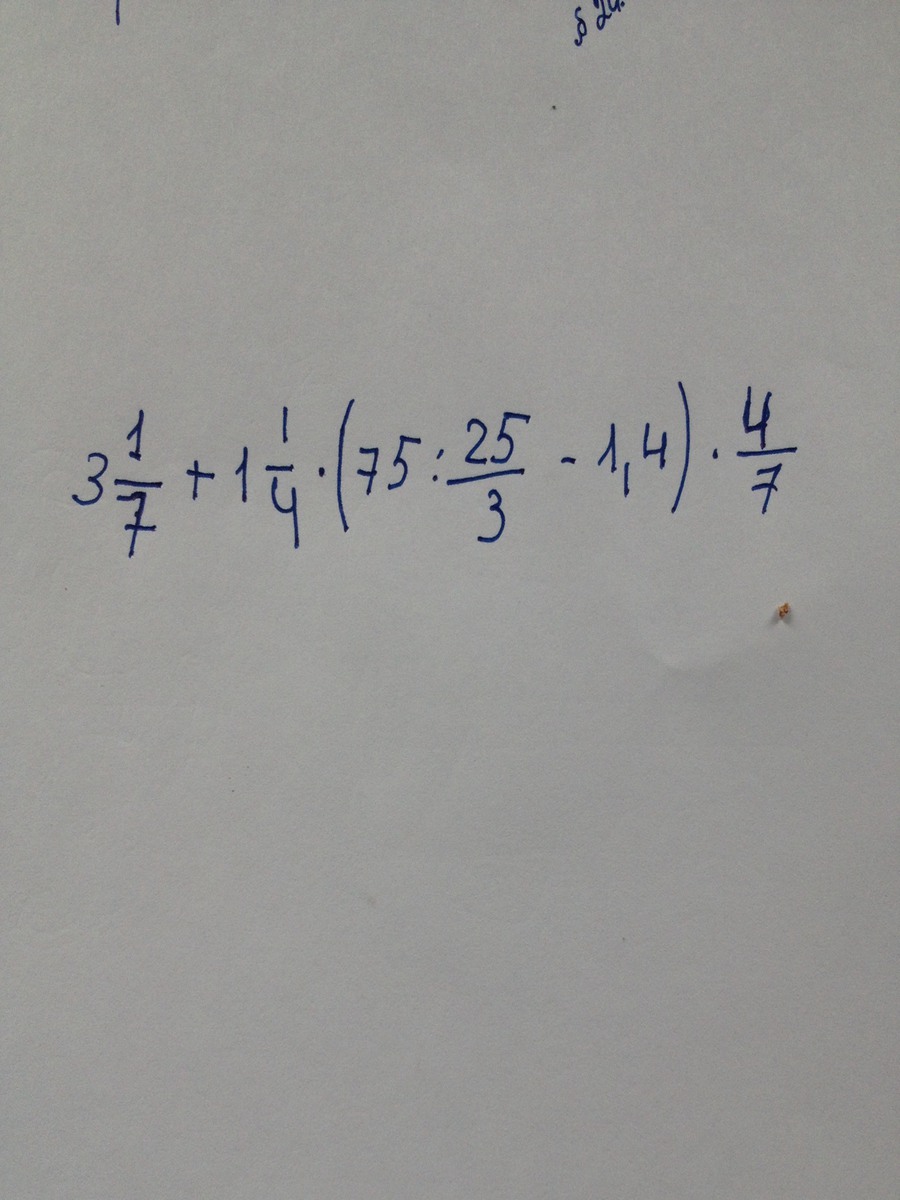 3 1/7 + 1 1/4 · (75 : 25/3 - 1,4) · 4/7